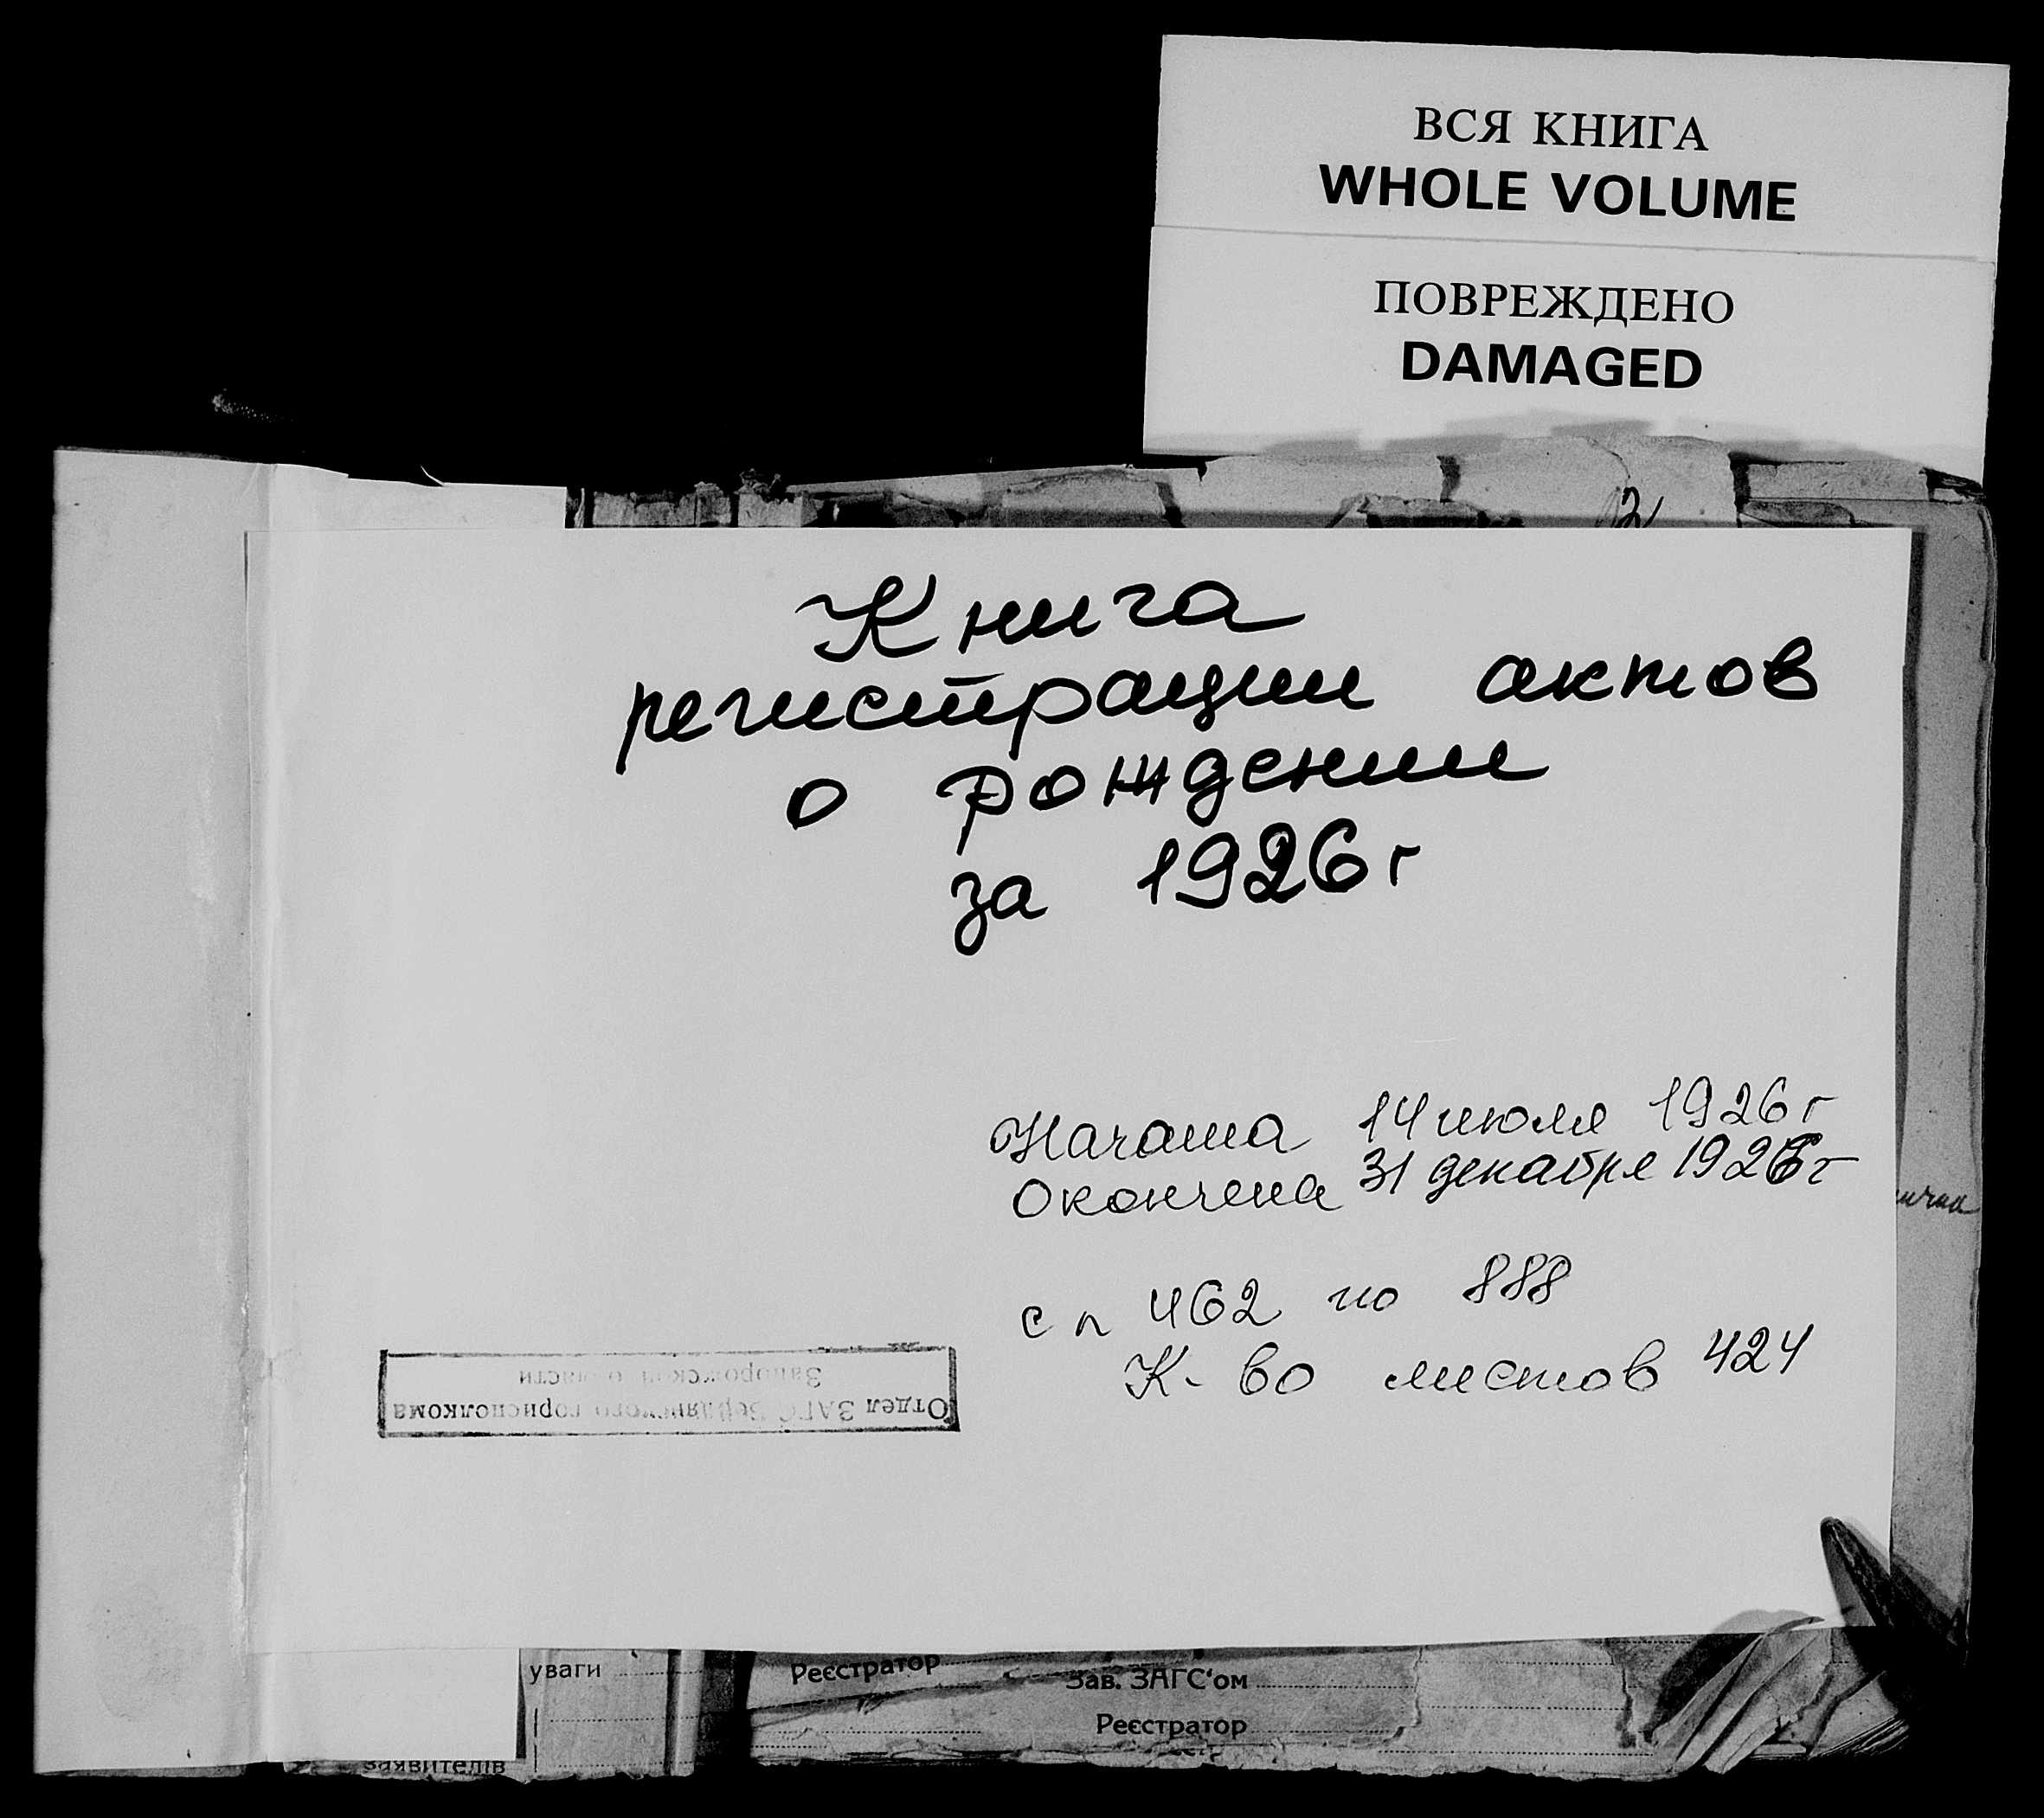 ВСЯ КНИГА
WHOLE VOLUME
ПОВРЕЖДЕНО
DAMAGED
Книга
регистрации актов
о рождении
за 1926 г
Начата 14 июля 1926 г
Окончена 31 декабря 1926 г
с n 462 по 888
К-во листов 424
Отдел ЗАГС Бердянского горисполкома
Запорожской области
уваги
Реєстратор
Зав. ЗАГС‘ом
Реєстратор
заявителів